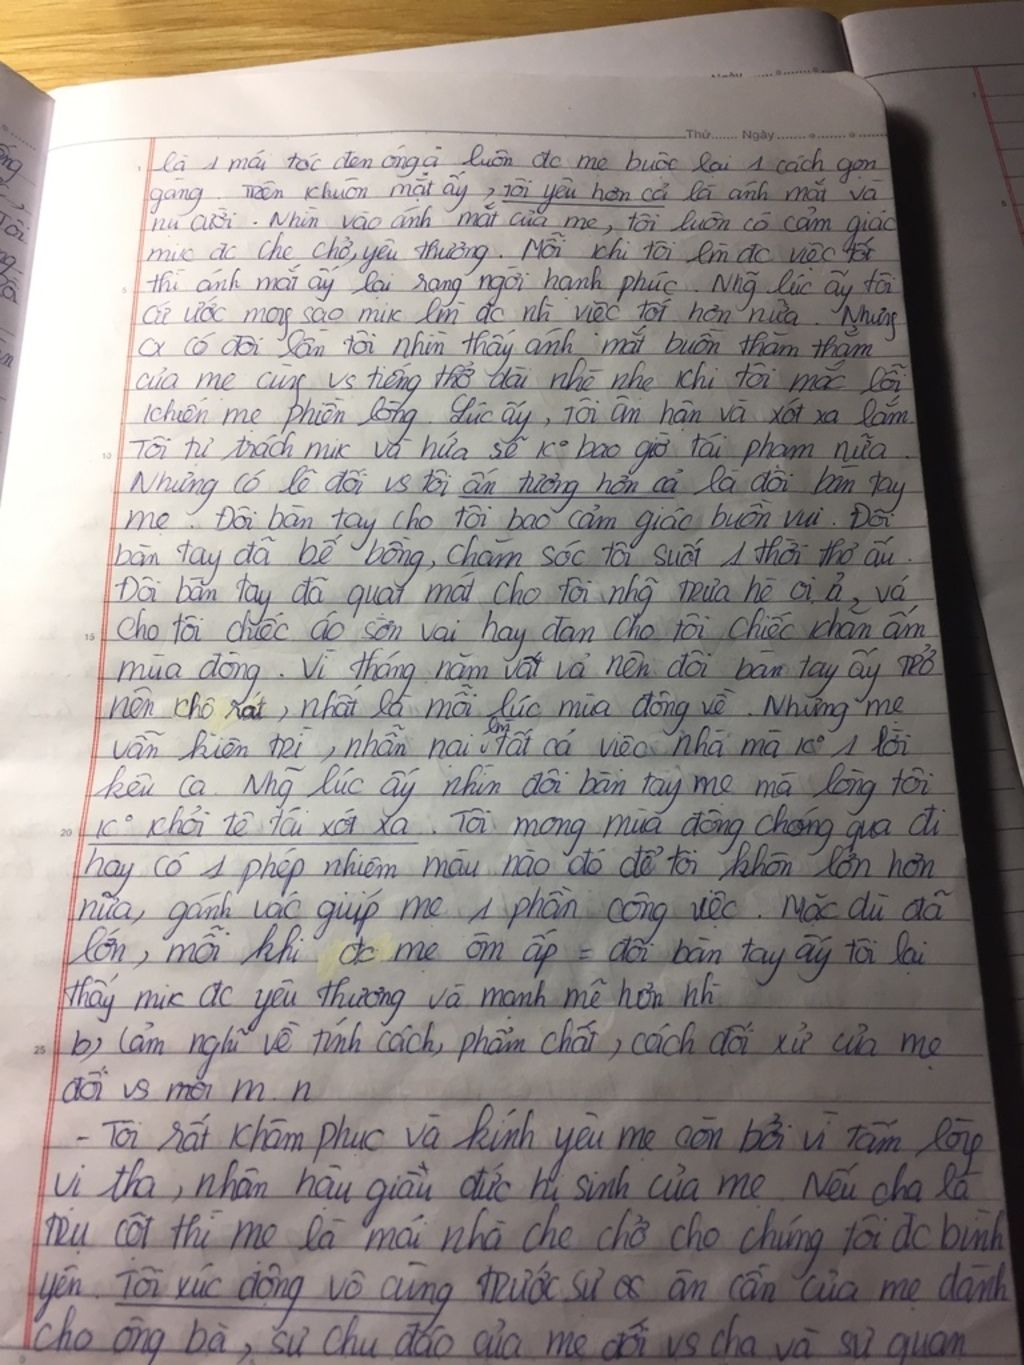 Thứ...... Ngày.......
là 1 mái tóc đen óng ả luôn đc mẹ buộc lại 1 cách gọn
gàng. Trên khuôn mặt ấy, tôi yêu hơn cả là ánh mắt và
nụ cười. Nhìn vào ánh mắt của mẹ, tôi luôn có cảm giác
mik đc che chở, yêu thương. Mỗi khi tôi lm đc việc tốt
5 thì ánh mắt ấy lại rạng ngời hạnh phúc. Nhg lúc ấy tôi
cứ ước mong sao mik lm đc nh việc tốt hơn nữa. Nhưng
có đôi lần tôi nhìn thấy ánh mắt buồn thăm thẳm
của mẹ cùng vs tiếng thở dài nhè nhẹ khi tôi mắc lỗi
khiến mẹ phiền lòng. Lúc ấy, tôi ân hận và xót xa lắm.
10 Tôi tự trách mik và hứa sẽ k° bao giờ tái phạm nữa.
Nhưng có lẽ đối vs tôi ấn tượng hơn cả là đôi bàn tay
mẹ. Đôi bàn tay cho tôi bao cảm giác buồn vui. Đôi
bàn tay đã bế bồng, chăm sóc tôi suốt 1 thời thơ ấu.
Đôi bàn tay đã quạt mát cho tôi nhg trưa hè oi ả, vá
15 cho tôi chiếc áo sờn vai hay đan cho tôi chiếc khăn ấm
mùa đông. Vì tháng năm vất vả nên đôi bàn tay ấy trở
nên khô rát, nhất là mỗi lúc mùa đông về. Nhưng mẹ
vẫn kiên trì, nhẫn nại lm tất cả việc nhà mà k° 1 lời
kêu ca. Nhg lúc ấy nhìn đôi bàn tay mẹ mà lòng tôi
20 k° khỏi tê tái xót xa. Tôi mong mùa đông chóng qua đi
hay có 1 phép nhiệm màu nào đó để tôi khôn lớn hơn
nữa, gánh vác giúp mẹ 1 phần công việc. Mặc dù đã
lớn, mỗi khi đc mẹ ôm ấp = đôi bàn tay ấy tôi lại
thấy mik đc yêu thương và mạnh mẽ hơn nh
25 b, Cảm nghĩ về tính cách, phẩm chất, cách đối xử của mẹ
đối vs mọi m. n
- Tôi rất khâm phục và kính yêu mẹ còn bởi vì tấm lòng
vị tha, nhân hậu giàu đức hi sinh của mẹ. Nếu cha là
trụ cột thì mẹ là mái nhà che chở cho chúng tôi đc bình
yên. Tôi xúc động vô cùng trước sự ân cần của mẹ dành
cho ông bà, sự chu đáo của mẹ đối vs cha và sự quan